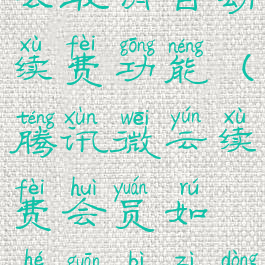 xù fèi gōng néng
续费功能（
téng xùn wēi yún xù
腾讯微云续
fèi huì yuán rú
费会员如
hé guān bì zì dòng